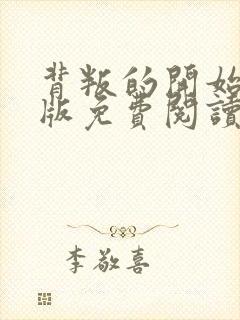 背叛的開始
版免費閱讀
李敬喜